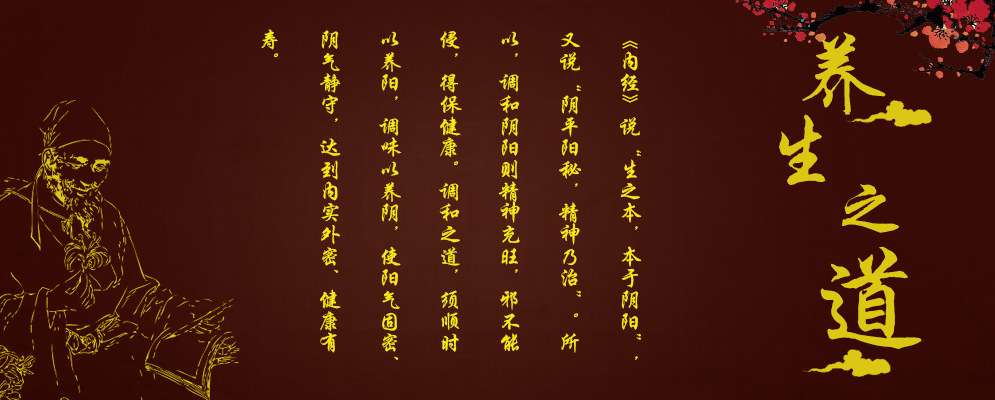 养生之道
《内经》说“生之本，本于阴阳”，
又说“阴平阳秘，精神乃治”。所
以，调和阴阳则精神充旺，邪不能
侵，得保健康。调和之道，须顺时
以养阳，调味以养阴，使阳气固密、
阴气静守，达到内实外密、健康有
寿。